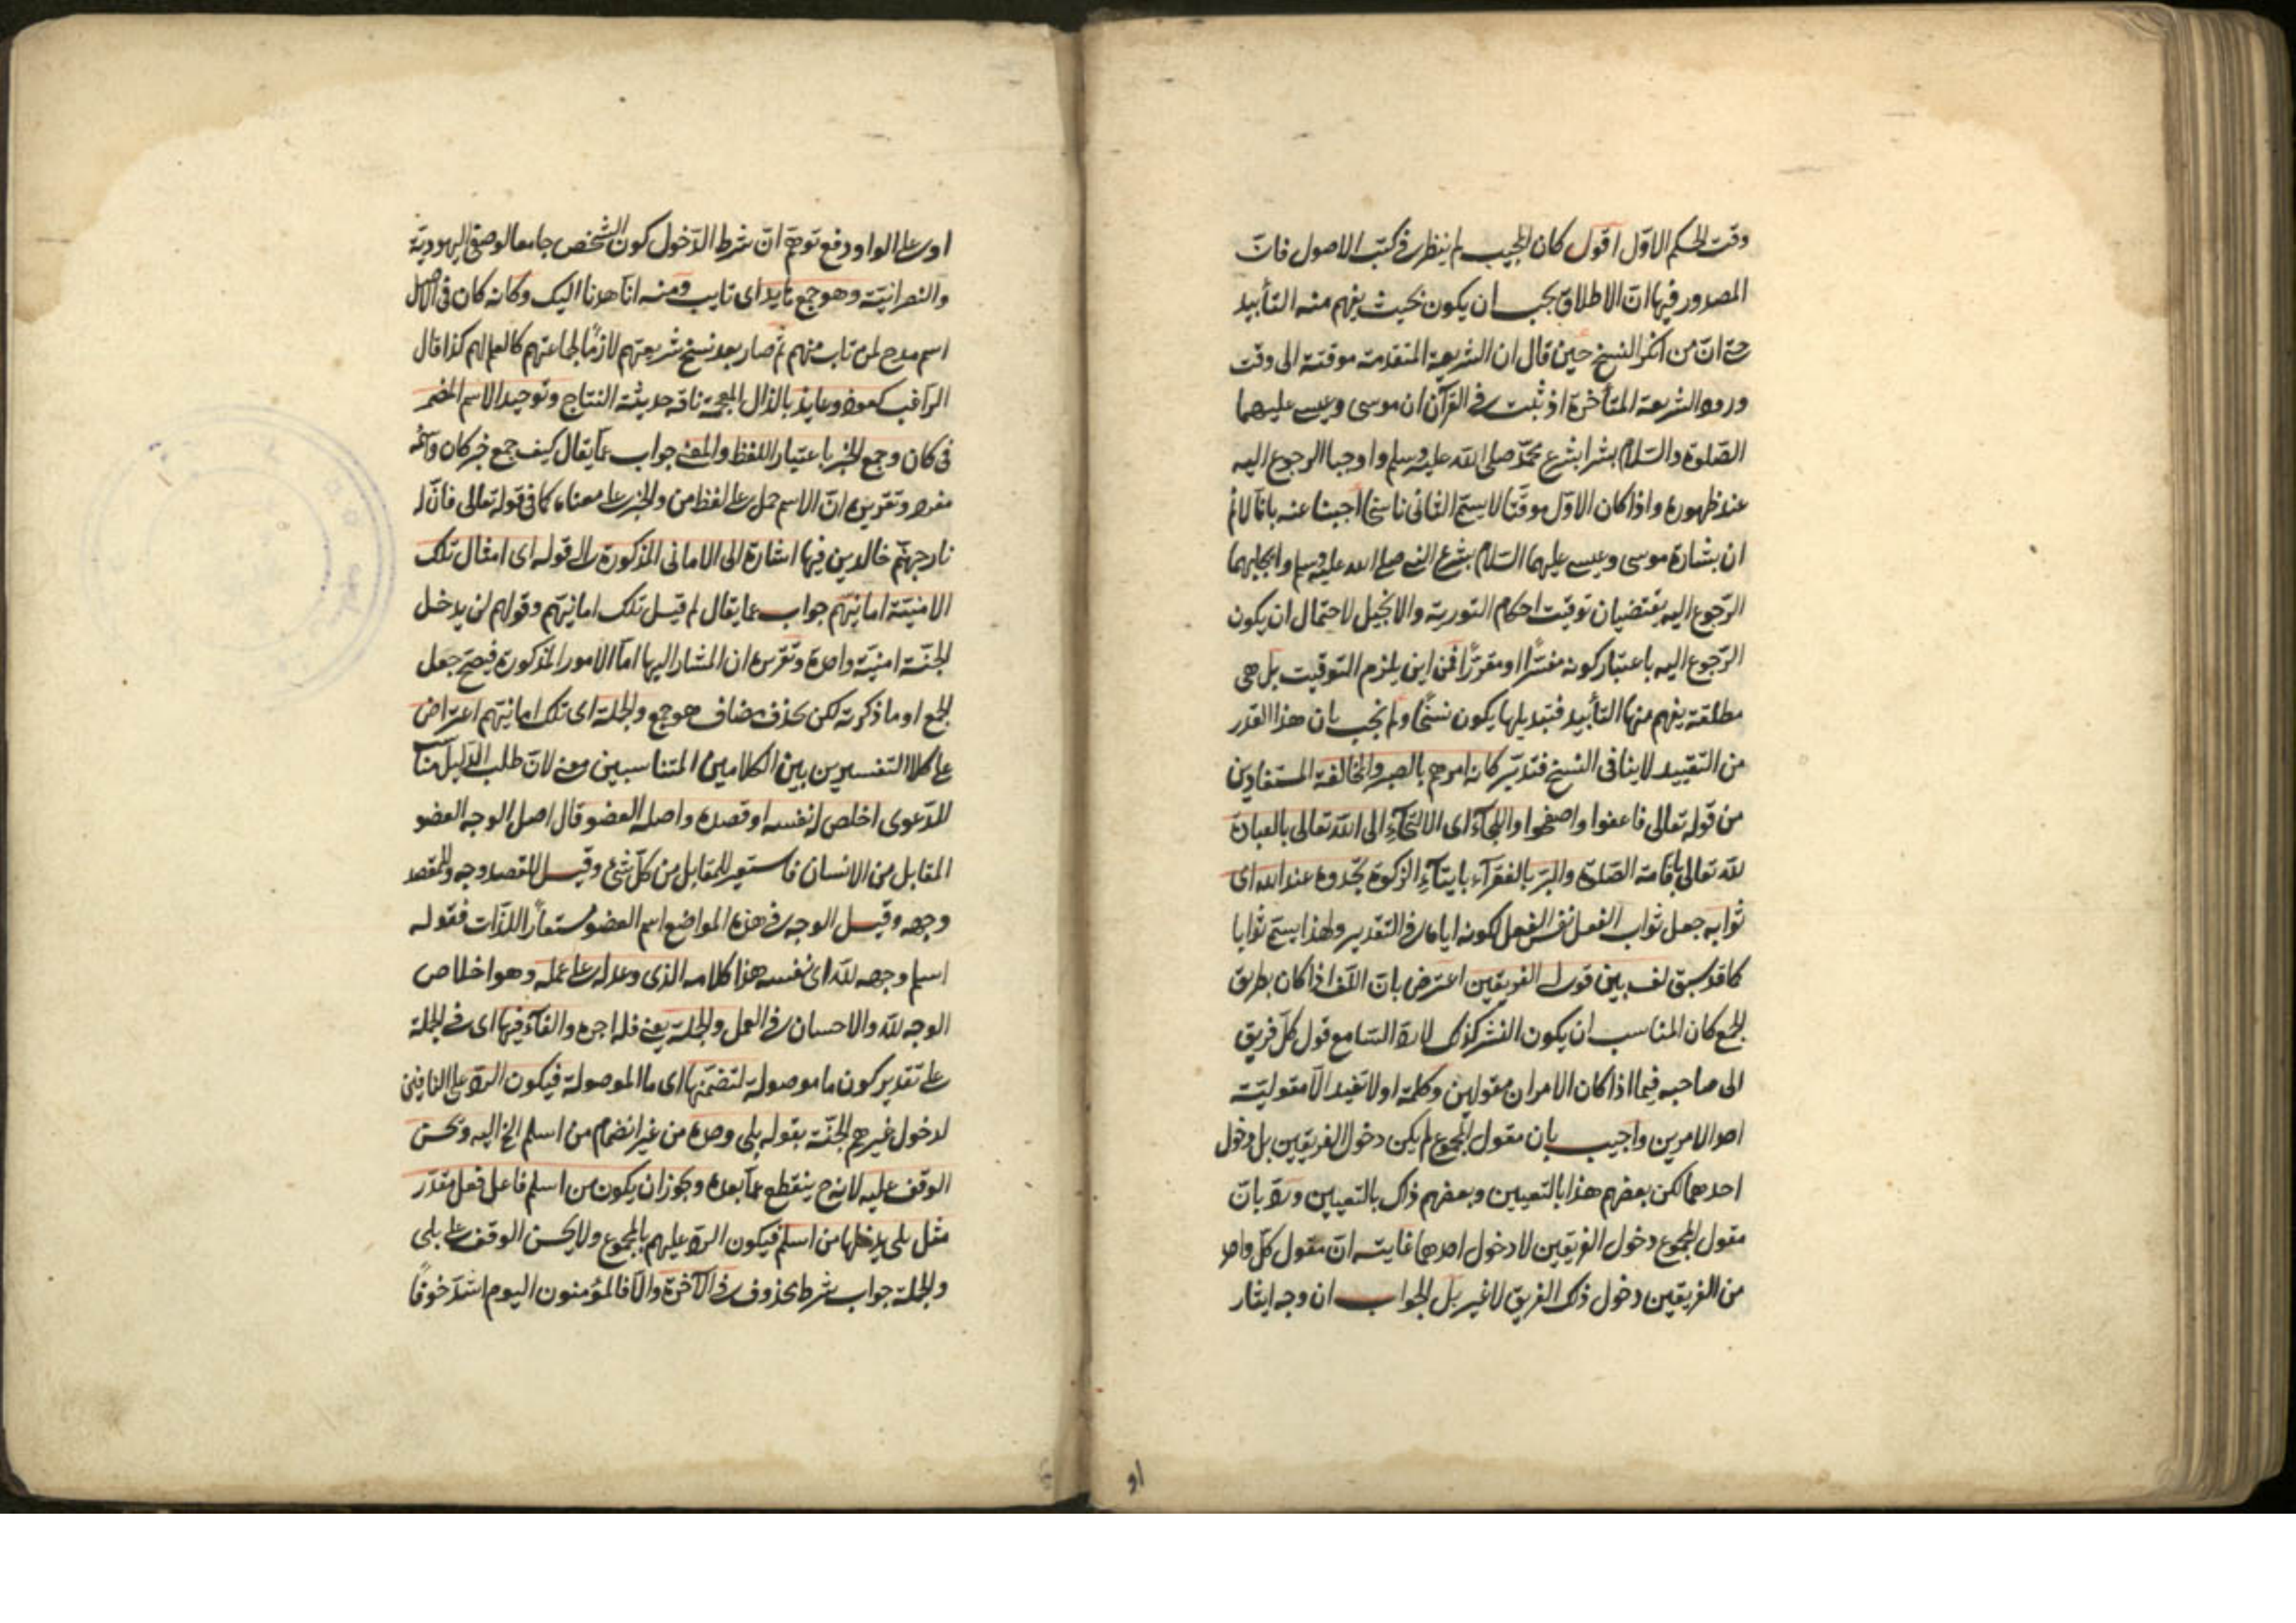 وقت الحكم الاوّل اقول كان المجيب لم ينظر فى كتب الاصول فانّ
المصدور فيها انّ الاطلاق يجب ان يكون بحيث يفهم منه التأبيد
حتى انّ من انكر النسخ حين قال ان الشريعة المتقدمة موقتة الى وقت
ورود الشريعة المتأخرة اذ ثبت فى القرآن ان موسى وعيسى عليهما
الصّلوة والسّلام بشرا بشرع محمّد صلى الله عليه وسلم واوجبا الرجوع اليه
عند ظهوره واذا كان الاوّل موقّتا لا يسمّى الثانى ناسخا اجبنا عنه بانّا لا نم
ان بشارة موسى وعيسى عليهما السّلام بشرع النبى صلى الله عليه وسلم وايجابهما
الرّجوع اليه يقتضيان توقيت احكام التورية والانجيل لاحتمال ان يكون
الرّجوع اليه باعتبار كونه مفسّرا او مقرّرا فمن اين يلزم التّوقيت بل هى
مطلقة يفهم منها التأبيد فتبديلها يكون نسخًا ولم يجب بان هذا القدر
من التّقييد لا ينافى النسخ فتدبّر كانه امرهم بالصبر والمخالفة المستفادين
من قوله تعالى فاعفوا واصفحوا واللجآء اى الالتجآء الى الله تعالى بالعبادة
لله تعالى باقامة الصّلوة والبرّ بالفقرآء بايتآء الزكوة تجدوه عند الله اى
ثوابه جعل ثواب الفعل نفس الفعل لكونه اياه فى التّقدير ولهذا يسمّى ثوابا
كما قد سبق لف بين قولى الفريقين اعترض بانّ اللّف اذا كان بطريق
الجمع كان المناسب ان يكون النشر كذلك لان ردّ السّامع قول كلّ فريق
الى صاحبه فيما اذا كان الامران مقولين وكلمة او لا تفيد الّا مقوليّة
احد الامرين واجيب بان مقول المجموع لم يكن دخول الفريقين بل دخول
احدهما لكن بعضهم هذا بالتعيين وبعضهم ذاك بالتعيين وردّ بانّ
مقول المجموع دخول الفريقين لا دخول احدهما غايته انّ مقول كلّ واحد
من الفريقين دخول ذلك الفريق لا غير بل الجواب ان وجه ايثار
او
او على الواو دفع توهّم انّ شرط الدّخول كون الشّخص جامعا لوصفى اليهوديّة
والنصرانيّة وهو جمع هايد اى تايب ومنه انّا هدنا اليك وكانه كان فى الاصل
اسم مدح لمن تاب منهم ثمّ صار بعد نسخ شريعتهم لازمًا لجماعتهم كالعلم لهم كذا قال
الرّاغب كعوذ وعايذ بالذال المعجمة ناقة حديثة النتاج وتوحيد الاسم المضمر
فى كان وجمع الخبر باعتبار اللفظ والمعنى جواب عمّا يقال كيف جمع خبر كان واسمه
مفرد وتقريره انّ الاسم حمل على لفظ من والخبر على معناه كما فى قوله تعالى فانّ له
نار جهنّم خالدين فيها اشارة الى الامانى المذكورة الى قوله اى امثال تلك
الامنيّة امانيّهم جواب عما يقال لم قيل تلك امانيّهم وقولهم لن يدخل
الجنّة امنيّة واحدة وتقريره ان المشار اليها امّا الامور المذكورة فيصحّ جعل
الجمع او ما ذكرته لكن بحذف مضاف هو جمع والجملة اى تلك امانيّهم اعتراض
على كلا التفسيرين بين الكلامين المتناسبين معنى لانّ طلب الدّليل منآسب
للدّعوى اخلص له نفسه او قصده واصله العضو قال اصل الوجه العضو
المقابل من الانسان فاستعير للمقابل من كلّ شئ وقيل للقصد وجه وللمقصد
وجهه وقيل الوجه فى هذه المواضع اسم العضو مستعارًا للذّات فقوله
اسلم وجهه لله اى نفسه هذا كلامه الذى وعد له على عمله وهو اخلاص
الوجه لله والاحسان فى العمل والجملة يعنى فله اجره والفآء فيها اى فى الجملة
على تقدير كون ما موصولة لتضمّنها اى ما الموصولة فيكون الردّ على النافين
لدخول غيرهم الجنّة بقوله بلى وحده من غير انضمام من اسلم الخ اليه ويحسن
الوقف عليه لانه ح ينقطع عمّا بعده ويجوز ان يكون من اسلم فاعل فعل مقدّر
مثل بلى يدخلها من اسلم فيكون الردّ عليهم بالمجموع ولا يحسن الوقف على بلى
والجملة جواب شرط محذوف فى الآخرة والّا فالمؤمنون اليوم اشدّ خوفًا